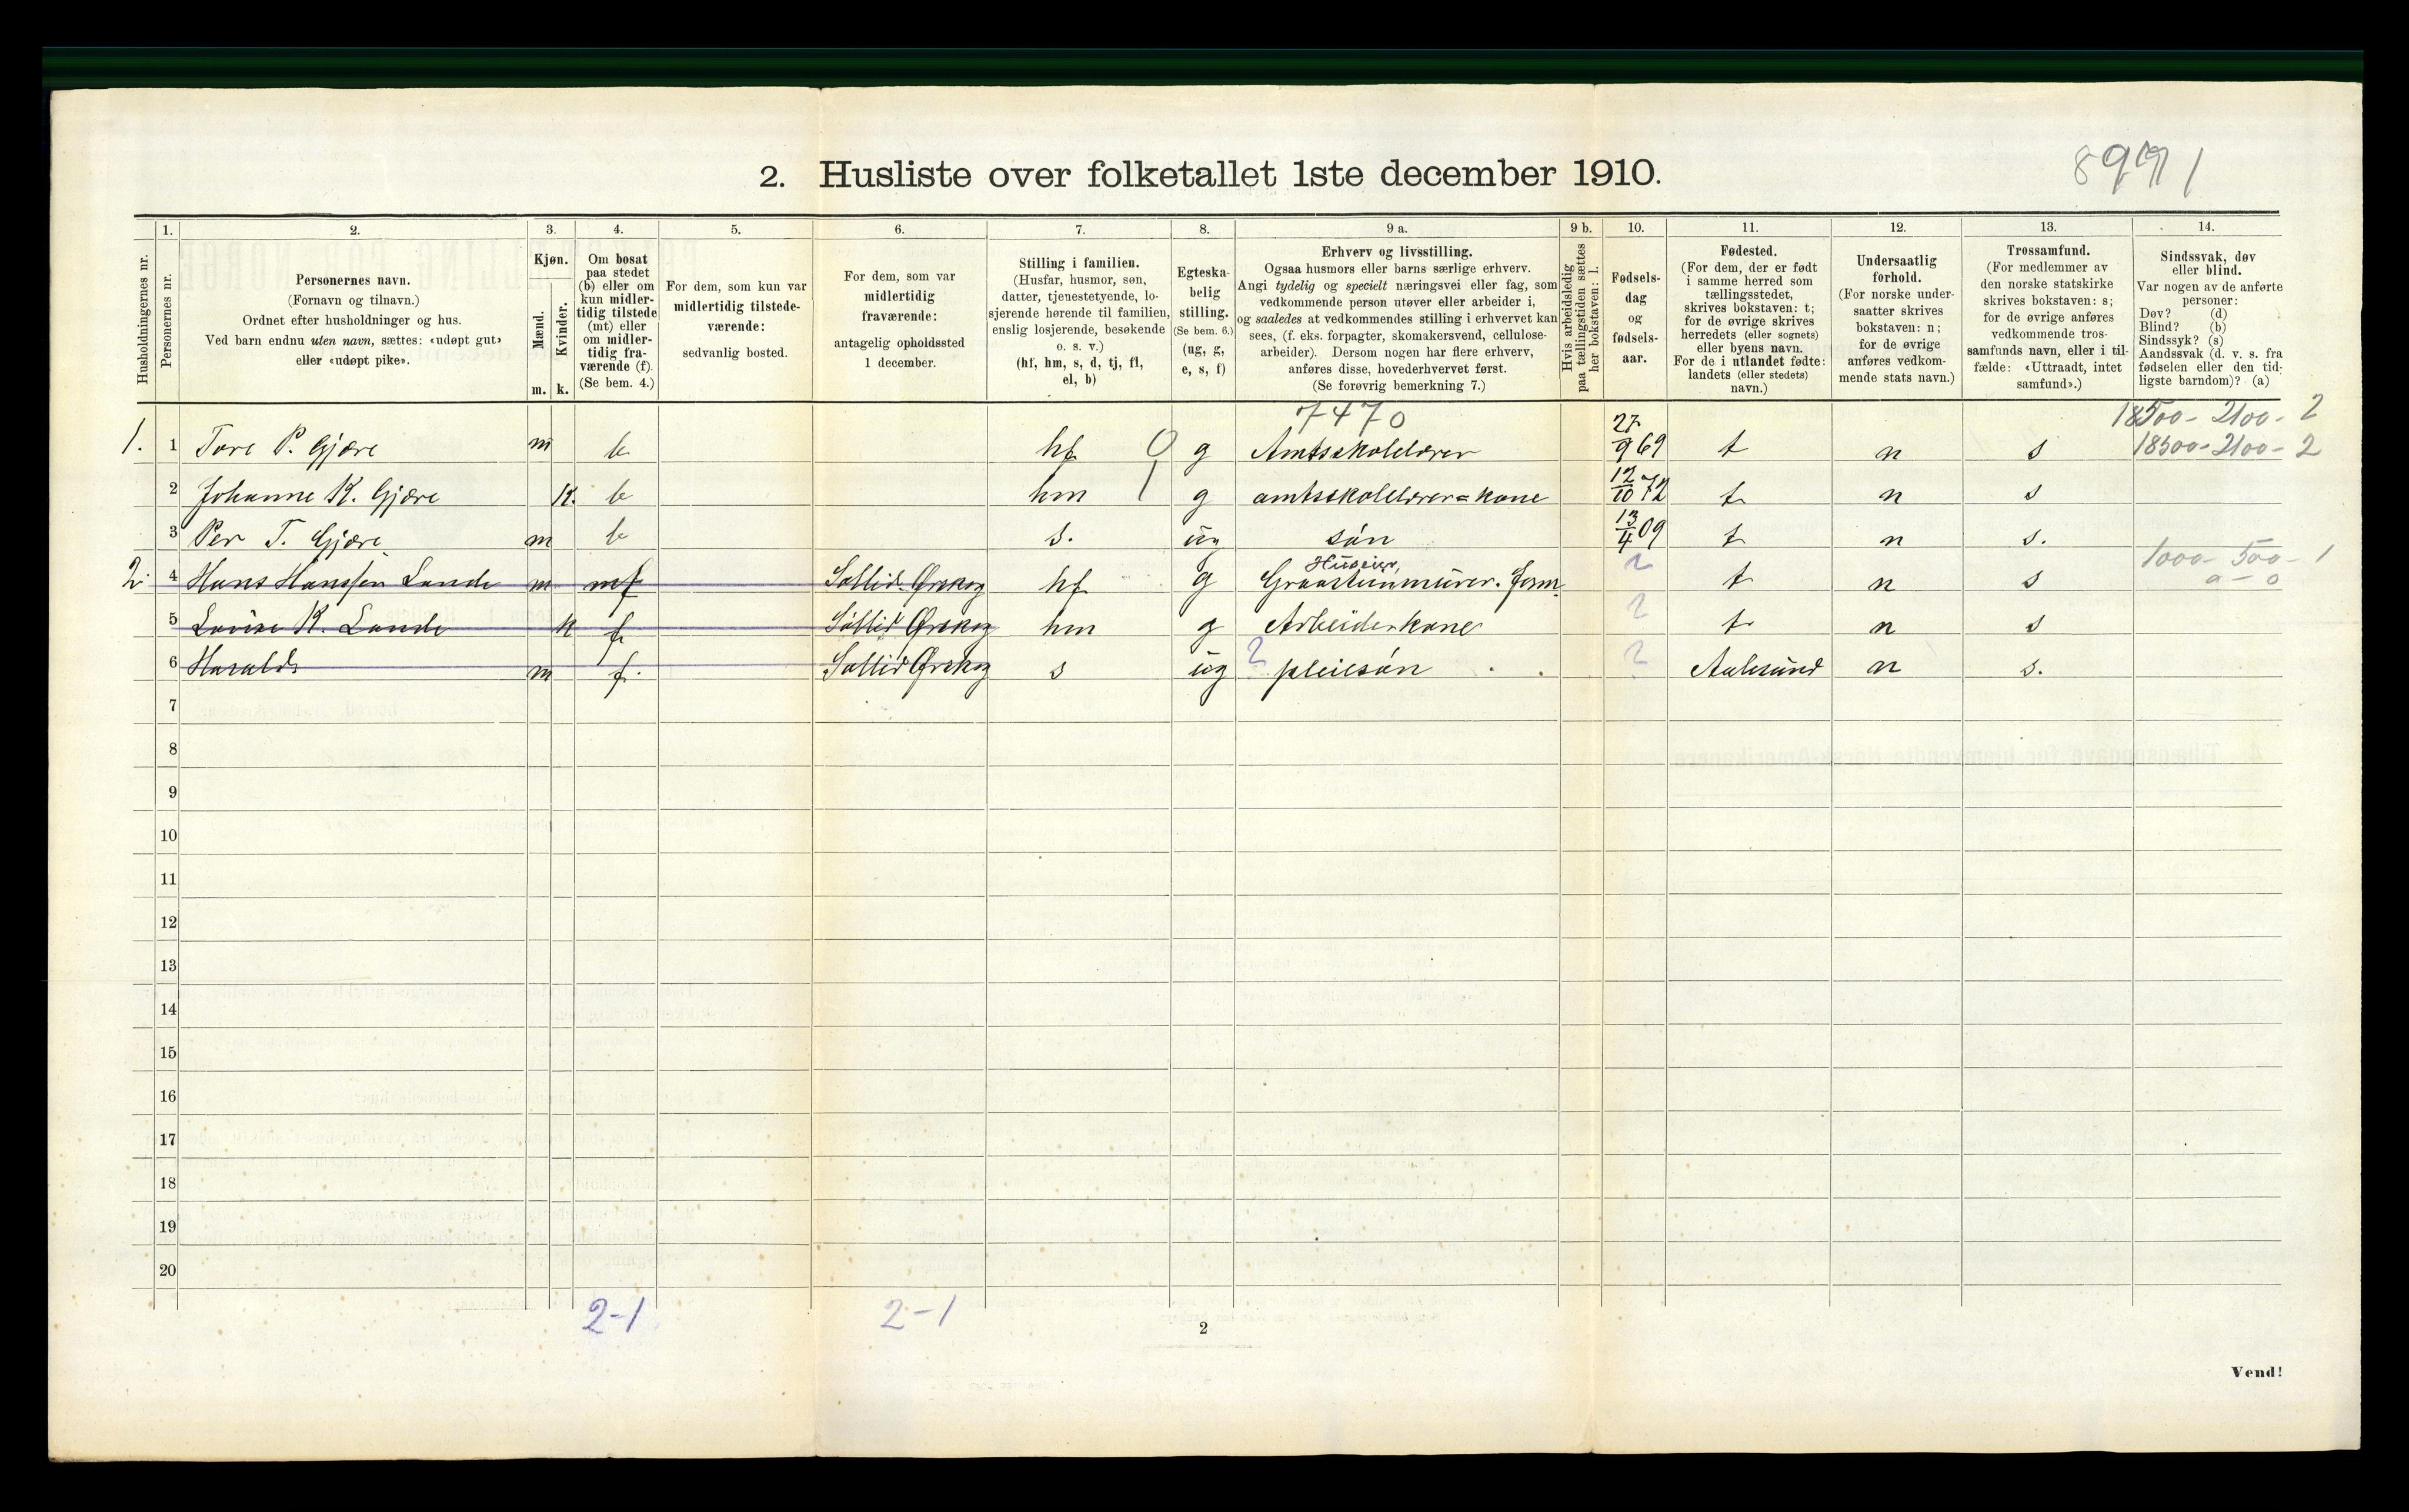 2. Husliste over folketallet 1ste december 1910.
1. 2. 3. 4. 5. 6. 7. 8. 9 a. 9 b. 10. 11. 12. 13. 14.
Husholdningernes nr.
Personernes nr.
Personernes navn.
(Fornavn og tilnavn.)
Ordnet efter husholdninger og hus.
Ved barn endnu uten navn, sættes: «udøpt gut»
eller «udøpt pike».
Kjøn.
Mænd.
Kvinder.
m. k.
Om bosat
paa stedet
(b) eller om
kun midler-
tidig tilstede
(mt) eller
om midler-
tidig fra-
værende (f).
(Se bem. 4.)
For dem, som kun var
midlertidig tilstede-
værende:
sedvanlig bosted.
For dem, som var
midlertidig
fraværende:
antagelig opholdssted
1 december.
Stilling i familien.
(Husfar, husmor, søn,
datter, tjenestetyende, lo-
sjerende hørende til familien,
enslig losjerende, besøkende
o. s. v.)
(hf, hm, s, d, tj, fl,
el, b)
Egteska-
belig
stilling.
(Se bem. 6.)
(ug, g,
e, s, f)
Erhverv og livsstilling.
Ogsaa husmors eller barns særlige erhverv.
Angi tydelig og specielt næringsvei eller fag, som
vedkommende person utøver eller arbeider i,
og saaledes at vedkommendes stilling i erhvervet kan
sees, (f. eks. forpagter, skomakersvend, cellulose-
arbeider). Dersom nogen har flere erhverv,
anføres disse, hovederhvervet først.
(Se forøvrig bemerkning 7.)
Hvis arbeidsledig
paa tællingstiden sættes
her bokstaven: l.
Fødsels-
dag
og
fødsels-
aar.
Fødested.
(For dem, der er født
i samme herred som
tællingsstedet,
skrives bokstaven: t;
for de øvrige skrives
herredets (eller sognets)
eller byens navn.
For de i utlandet fødte:
landets (eller stedets)
navn.)
Undersaatlig
forhold.
(For norske under-
saatter skrives
bokstaven: n;
for de øvrige
anføres vedkom-
mende stats navn.)
Trossamfund.
(For medlemmer av
den norske statskirke
skrives bokstaven: s;
for de øvrige anføres
vedkommende tros-
samfunds navn, eller i til-
fælde: «Uttraadt, intet
samfund».)
Sindssvak, døv
eller blind.
Var nogen av de anførte
personer:
Døv? (d)
Blind? (b)
Sindssyk? (s)
Aandssvak (d. v. s. fra
fødselen eller den tid-
ligste barndom)? (a)
7470
18500 - 2100 - 2
1. 1 Tore P. Gjære m b hf 0 g Amtsskolelærer 27/9 69 t n s 18500 - 2100 - 2
2 Johanne K. Gjære k. b hm 1 g amtsskolelærer=kone 12/10 72 t n s
3 Per T. Gjære m b s. ug søn 13/4 09 t n s.
Huseier, 1000 - 500 - 1
2. 4 Hans Hanssen Lande m mf hf g Graastensmurer. t n s 0 - 0
5 Louise K. Lande k f hm g Arbeiderkone t n s
6 Harald m f. s ug pleiesøn Aalesund n s.
7
8
9
10
11
12
13
14
15
16
17
18
19
20
2-1 2-1
2
Vend!